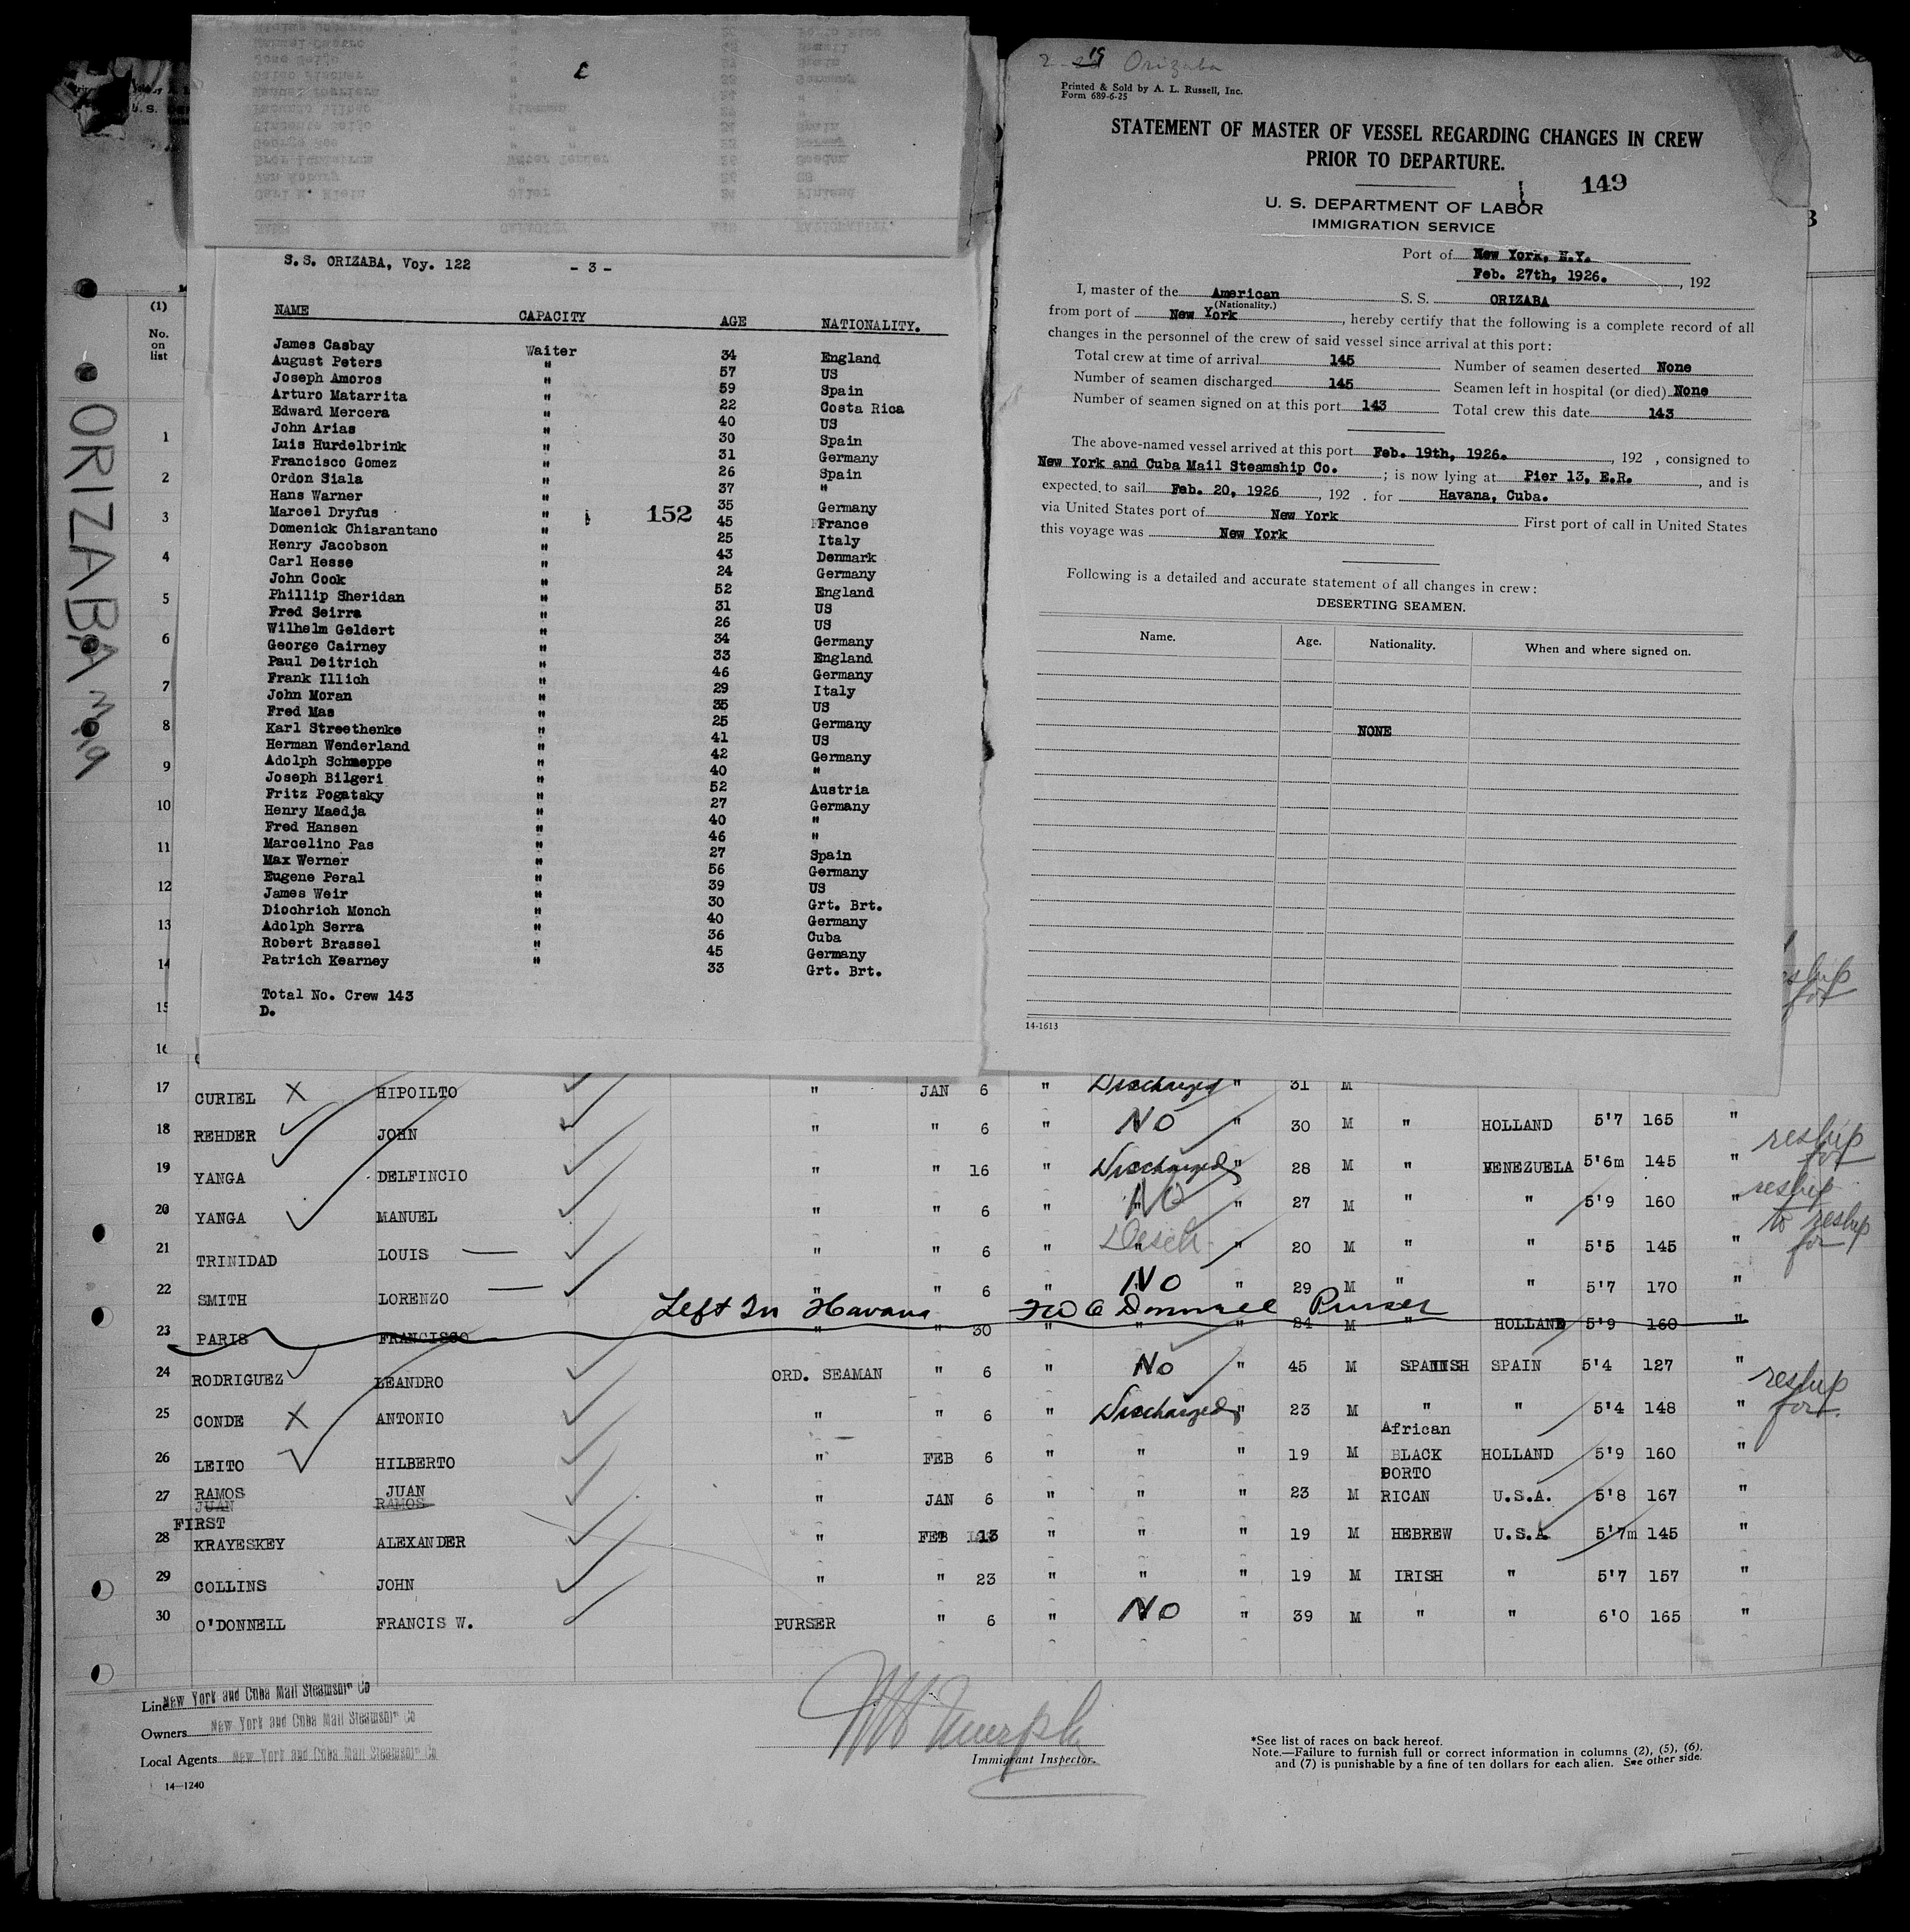 S.S. ORIZABA, Voy. 122 - 3 -
NAME CAPACITY AGE NATIONALITY.
James Casbay Waiter 34 England
August Peters " 57 US
Joseph Amoros " 59 Spain
Arturo Matarrita " 22 Costa Rica
Edward Mercera " 40 US
John Arias " 30 Spain
Luis Hurdelbrink " 31 Germany
Francisco Gomez " 26 Spain
Ordon Siala " 37 "
Hans Warner " 35 Germany
Marcel Dryfus " 45 France
152
Domenick Chiarantano " 25 Italy
Henry Jacobson " 43 Denmark
Carl Hesse " 24 Germany
John Cook " 52 England
Phillip Sheridan " 31 US
Fred Seirra " 26 US
Wilhelm Geldert " 34 Germany
George Cairney " 33 England
Paul Deitrich " 46 Germany
Frank Illich " 29 Italy
John Moran " 35 US
Fred Mas " 25 Germany
Karl Streethenke " 41 US
Herman Wenderland " 42 Germany
Adolph Schneppe " 40 "
Joseph Bilgeri " 52 Austria
Fritz Pogatsky " 27 Germany
Henry Maedja " 40 "
Fred Hansen " 46 "
Marcelino Pas " 27 Spain
Max Werner " 56 Germany
Eugene Peral " 39 US
James Weir " 30 Grt. Brt.
Diochrich Monch " 40 Germany
Adolph Serra " 36 Cuba
Robert Brassel " 45 Germany
Patrich Kearney " 33 Grt. Brt.
Total No. Crew 143
D.
Orizaba
Printed & Sold by A. L. Russell, Inc.
Form 689-6-25
STATEMENT OF MASTER OF VESSEL REGARDING CHANGES IN CREW
PRIOR TO DEPARTURE.
149
U. S. DEPARTMENT OF LABOR
IMMIGRATION SERVICE
Port of New York, N.Y.
Feb. 27th, 1926. , 192
I, master of the American S. S. ORIZABA
(Nationality.)
from port of New York , hereby certify that the following is a complete record of all
changes in the personnel of the crew of said vessel since arrival at this port:
Total crew at time of arrival 145 Number of seamen deserted None
Number of seamen discharged 145 Seamen left in hospital (or died) None
Number of seamen signed on at this port 143 Total crew this date 143
The above-named vessel arrived at this port Feb. 19th, 1926. , 192 , consigned to
New York and Cuba Mail Steamship Co. ; is now lying at Pier 13, E.R. , and is
expected to sail Feb. 20, 1926 , 192 . for Havana, Cuba.
via United States port of New York First port of call in United States
this voyage was New York
Following is a detailed and accurate statement of all changes in crew:
DESERTING SEAMEN.
Name. Age. Nationality. When and where signed on.
NONE
14-1613
ORIZABA
(1)
No.
on
list
1
2
3
4
5
6
7
8
9
10
11
12
13
14
15
16
17 CURIEL X HIPOILTO " JAN 6 " Discharged " 31 M
18 REHDER JOHN " " 6 " NO " 30 M " HOLLAND 5'7 165 "
reship
for
19 YANGA DELFINCIO " " 16 " Discharged " 28 M " VENEZUELA 5'6m 145 "
reship
20 YANGA MANUEL " " 6 " NO " 27 M " " 5'9 160 "
to reship
for
21 TRINIDAD LOUIS " " 6 " Desch " 20 M " " 5'5 145 "
22 SMITH LORENZO " " 6 " NO " 29 M " " 5'7 170 "
Left In Havana FW O Donnell Purser
23 PARIS FRANCISCO " " 30 " " " 24 M " HOLLAND 5'9 160 "
24 RODRIGUEZ LEANDRO ORD. SEAMAN " 6 " No " 45 M SPANISH SPAIN 5'4 127 "
reship
for
25 CONDE X ANTONIO " " 6 " Discharged " 23 M " " 5'4 148 "
African
26 LEITO HILBERTO " FEB 6 " " " 19 M BLACK HOLLAND 5'9 160 "
PORTO
27 RAMOS JUAN " JAN 6 " " " 23 M RICAN U.S.A. 5'8 167 "
JUAN RAMOS
FIRST
28 KRAYESKEY ALEXANDER " FEB 13 " " " 19 M HEBREW U.S.A 5'7m 145 "
29 COLLINS JOHN " " 23 " " " 19 M IRISH " 5'7 157 "
30 O'DONNELL FRANCIS W. PURSER " 6 " NO " 39 M " " 6'0 165 "
Line New York and Cuba Mail Steamship Co
Owners New York and Cuba Mail Steamship Co
Local Agents New York and Cuba Mail Steamship Co
14-1240
Immigrant Inspector.
*See list of races on back hereof.
Note.—Failure to furnish full or correct information in columns (2), (5), (6),
and (7) is punishable by a fine of ten dollars for each alien. See other side.